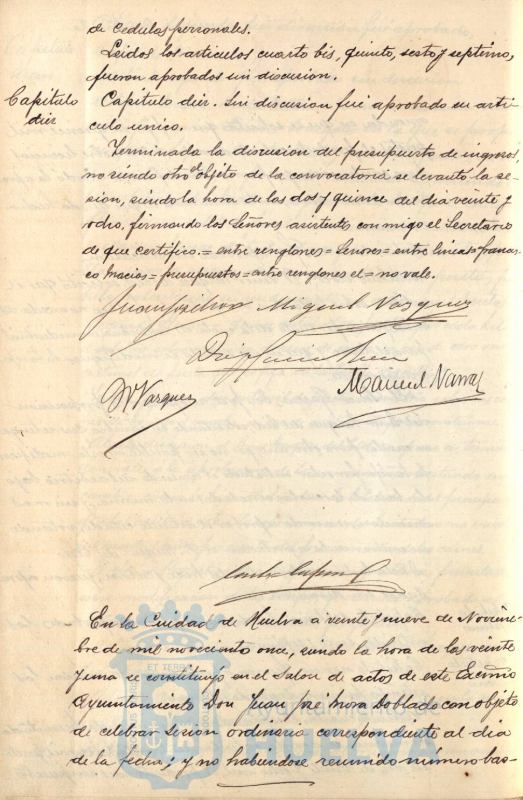 de cedulas personales.
Leidos los articulos cuarto bis, quinto, sesto y septimo,
fueron aprobados sin discusion.
Capitulo
diez
Capitulo diez. Sin discusion fué aprobado su arti-
culo unico.
Terminada la discusion del presupuesto de ingresos,
no siendo otro el objeto de la convocatoria se levantó la se-
sion, siendo la hora de las dos y quince del dia veinte y
ocho, firmando los Señores asistentes conmigo el Secretario
de que certifico.= entre renglones = Señores = entre lineas = francis-
co Macias = presupuestos = entre renglones el = no vale.
Miguel Vazquez
Vazquez
Manuel Navar
En la Ciudad de Huelva a veinte y nueve de Noviem-
bre de mil novecientos once, siendo la hora de las veinte
y una se constituyó en el Salon de actos de este Excmo
Ayuntamiento Don Juan José Mora Doblado con objeto
de celebrar sesion ordinaria correspondiente al dia
de la fecha; y no habiendose reunido número bas-
ET TERRÆ
Ayuntamiento de
HUELVA